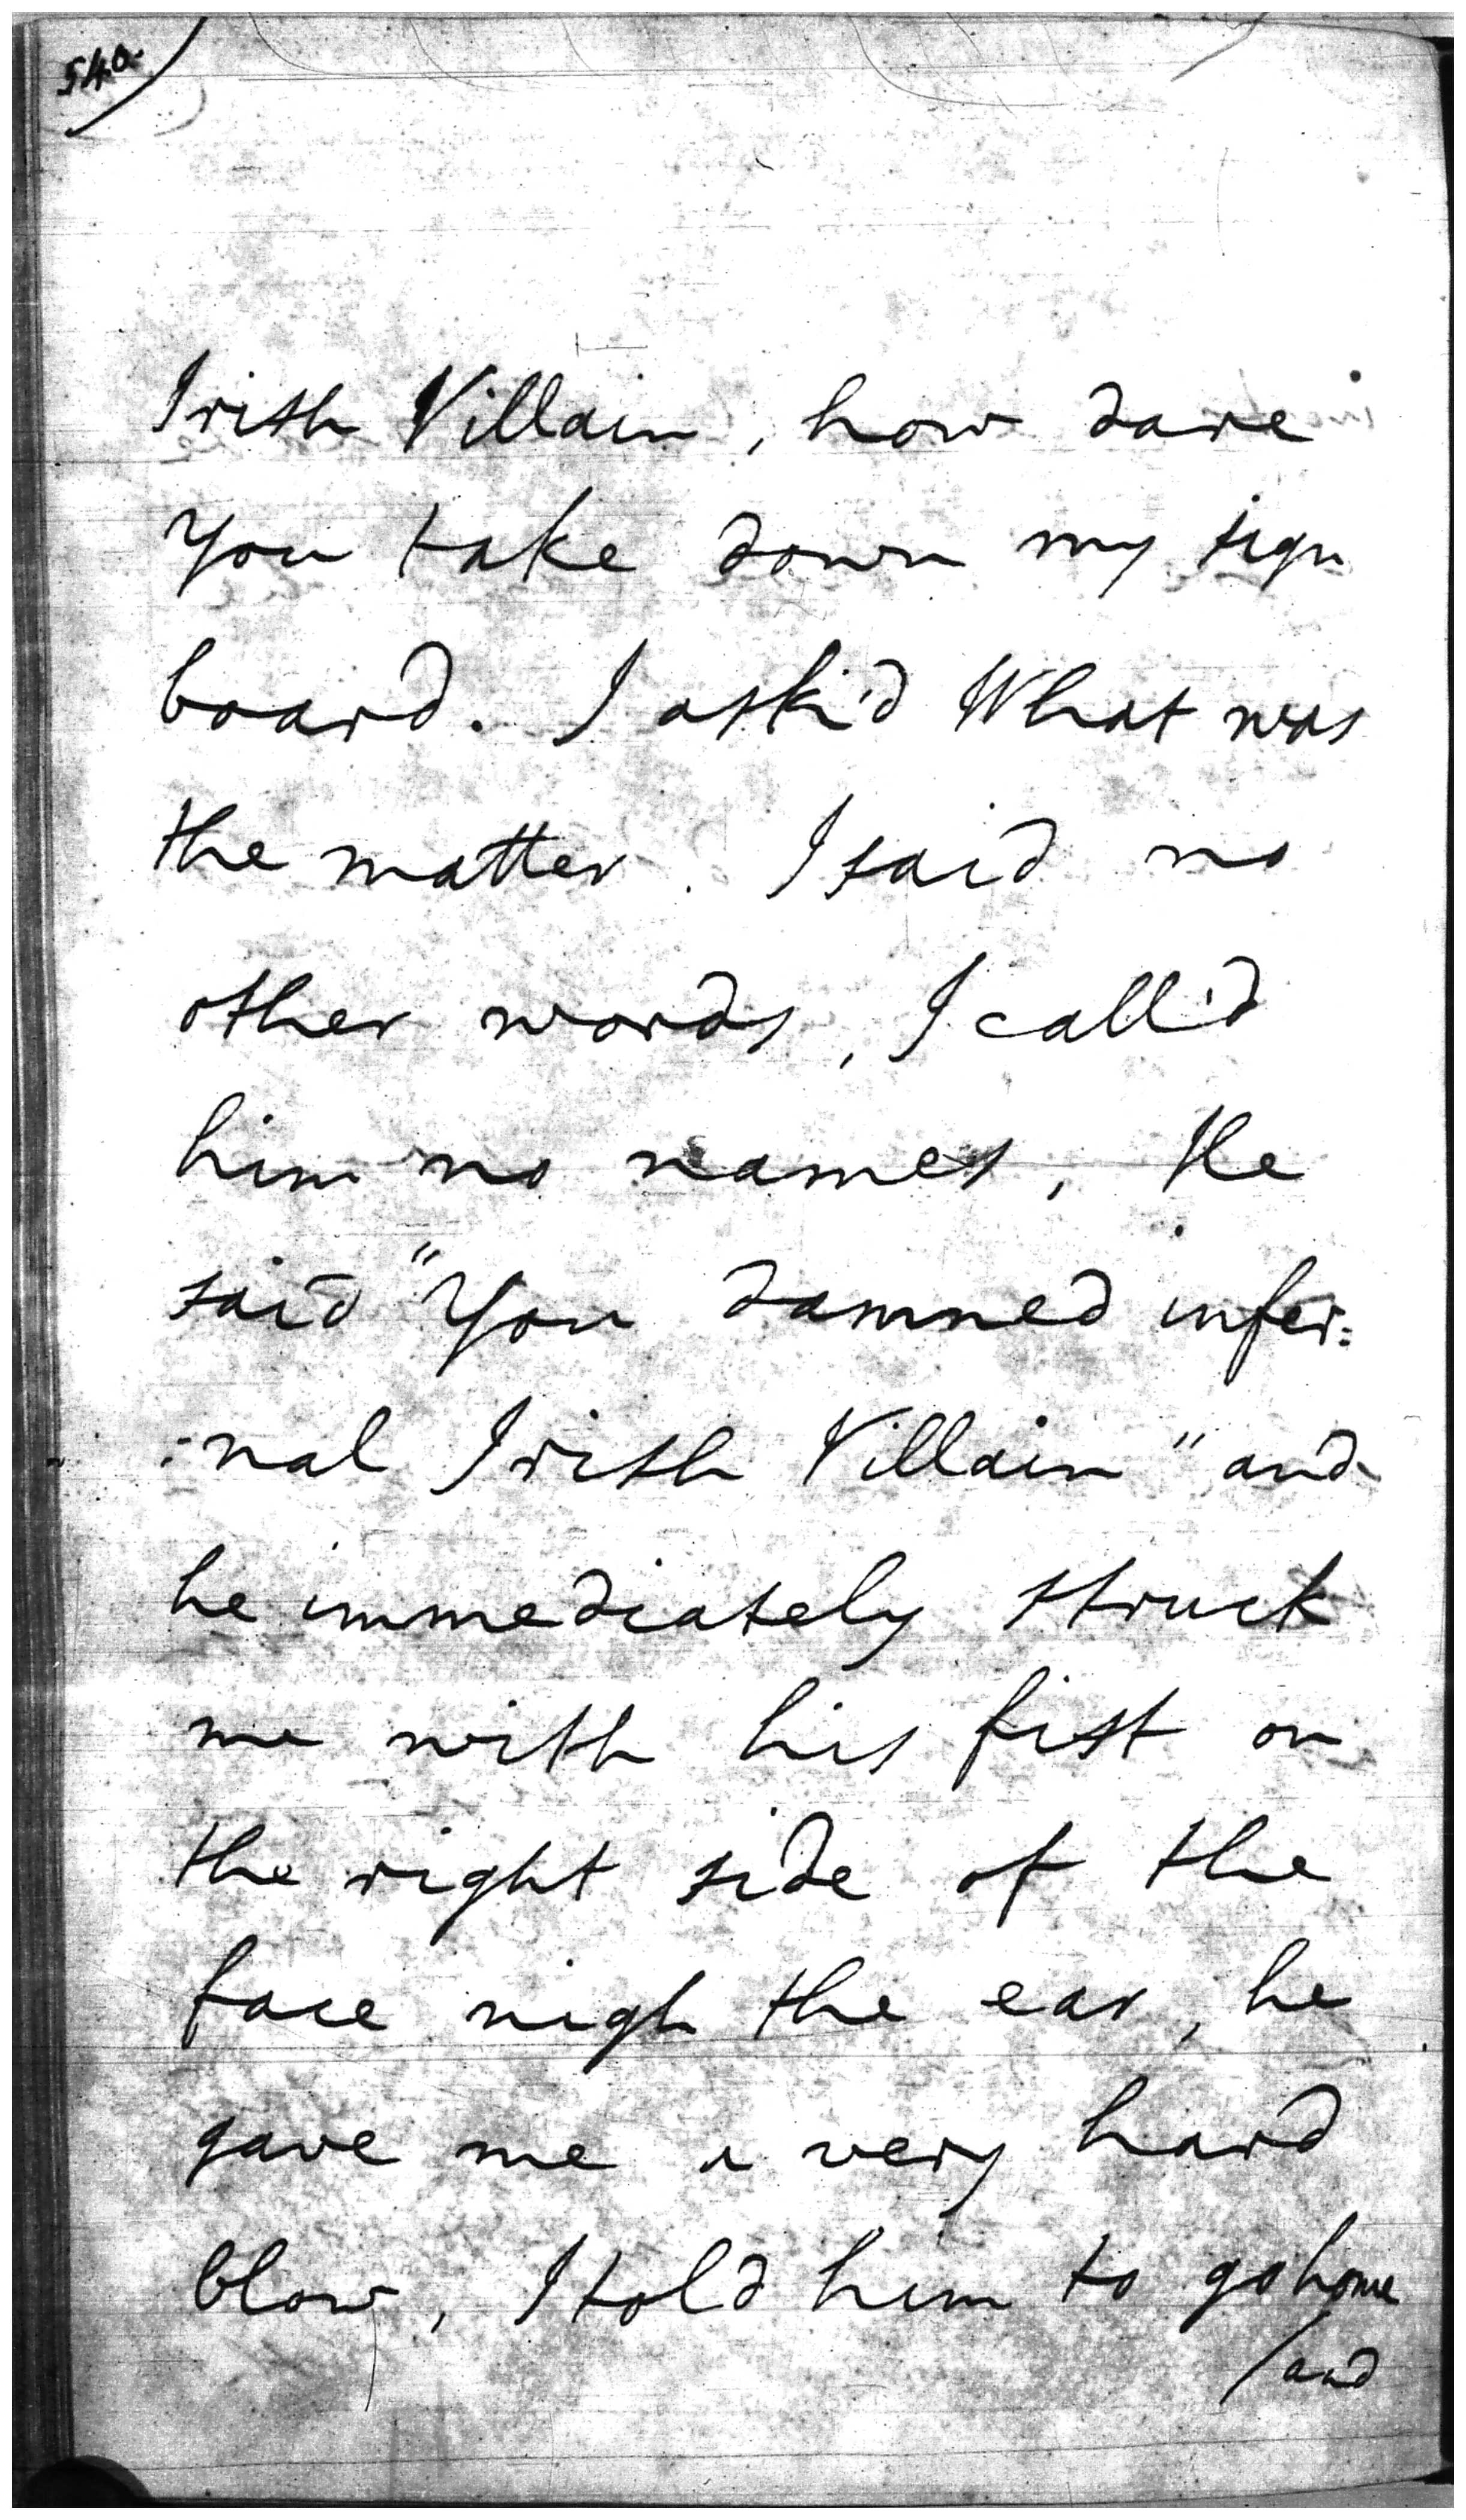 540.
Irish Villain, how dare
You take down my sign
board. I ask'd What was
the matter. I said no
other words, I call'd
him no names, He
said "You damned infer=
=nal Irish Villain" and
he immediately struck
me with his fist on
the right side of the
face nigh the ear, he
gave me a very hard
blow, I told him to go home
/and